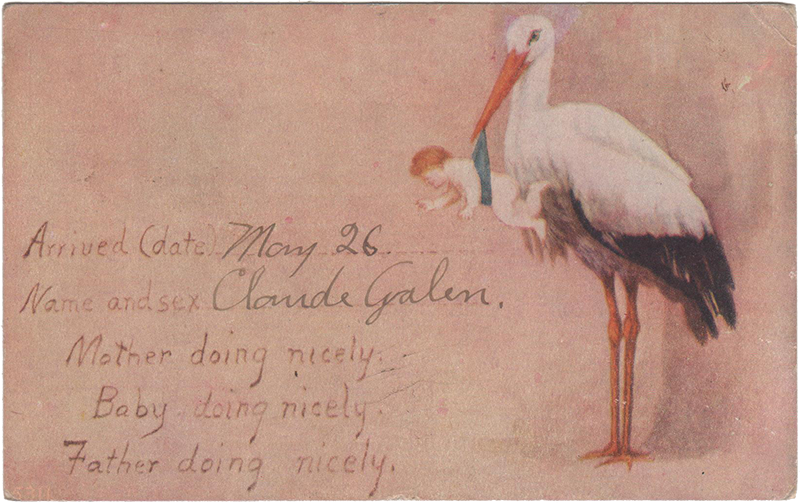 Arrived (date) May 26
Name and sex Claude Galen.
Mother doing nicely.
Baby doing nicely.
Father doing nicely.